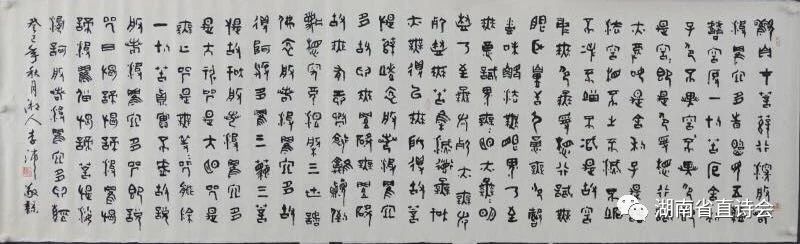 觀自在菩薩行深般若
波羅蜜多時照見五蘊
皆空度一切苦厄舍利
子色不異空空不異色色即
是空空即是色受想行識
亦復如是舍利子是諸
法空相不生不滅不垢
不淨不增不減是故空
中無色無受想行識無
眼耳鼻舌身意無色聲
香味觸法無眼界乃至
無意識界無無明亦無
無明盡乃至無老死
亦無老死盡無苦集滅道
無智亦無得以無所得故
菩提薩埵依般若波羅蜜
多故心無罣礙無罣礙
故無有恐怖遠離顛倒
夢想究竟涅槃三世諸
佛依般若波羅蜜多故
得阿耨多羅三藐三菩
提故知般若波羅蜜多
是大神咒是大明咒是
無上咒是無等等咒能除
一切苦真實不虛故說
般若波羅蜜多咒即說
咒曰揭諦揭諦波羅揭
諦波羅僧揭諦菩提薩
婆訶般若波羅蜜多心經
癸巳年秋月湘人李沛敬
湖南省直诗会